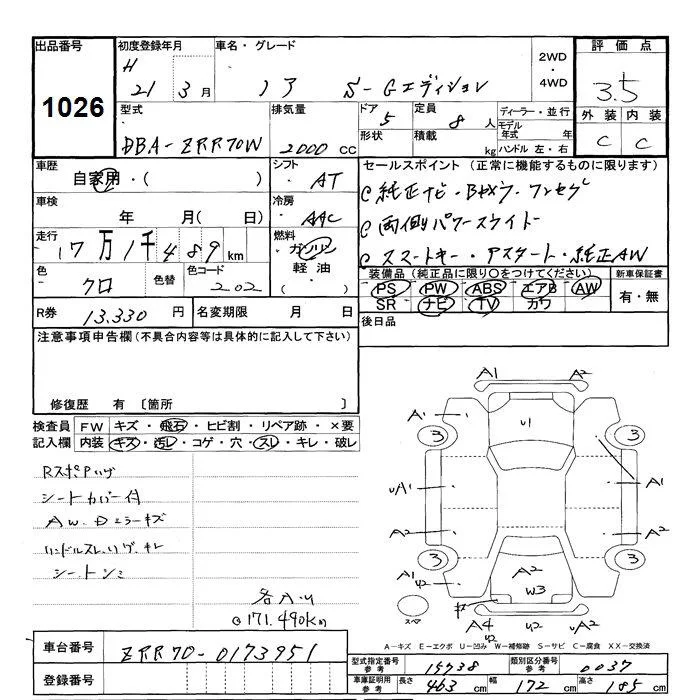 出品番号 1026
初度登録年月 H 21年 3月
車名・グレード ノア S-Gエディション
2WD・4WD
評価点 3.5
外装 C 内装 C
型式 DBA-ZRR70W
排気量 2000 CC
ドア 5 形状
定員 8人 積載 kg
ディーラー・並行
モデル年式 年
ハンドル 左・右
車歴 自家用・( )
シフト AT
車検 年 月( 日)
冷房 AAC
走行 17万1千489km
燃料 ガソリン 軽油・
色 クロ 色替 色コード 202
R券 13.330円
名変期限 月 日
セールスポイント (正常に機能するものに限ります)
純正ナビ・Bカメラ・ワンセグ
両側パワースライド
スマートキー・Pスタート・純正AW
装備品(純正品に限り○をつけてください)
PS PW ABS エアB AW
SR ナビ TV カワ
新車保証書 有・無
後日品
注意事項申告欄(不具合内容等は具体的に記入して下さい)
修復歴 有 〔箇所 〕
検査員記入欄
FW キズ・飛石・ヒビ割・リペア跡・×要
内装 キズ・汚レ・コゲ・穴・スレ・キレ・破レ
Rスポイラー
シートカバー付
AW.Dミラーキズ
ハンドルスレ
シートシミ
各AU
171.490km
A1 A2
A1 U1 A1
3 3
UA1 A1
A2 A2
3 3
A1 U2 A2 W3 A2
スペア
A4 U2 U2 UA2
A-キズ E-エクボ U-凹み W-補修跡 S-サビ C-腐食 XX-交換済
車台番号 ZRR70-0173951
登録番号
型式指定番号 参考 15738
類別区分番号 参考 0037
車庫証明用 参考 長さ 463cm 幅 172cm 高さ 185cm